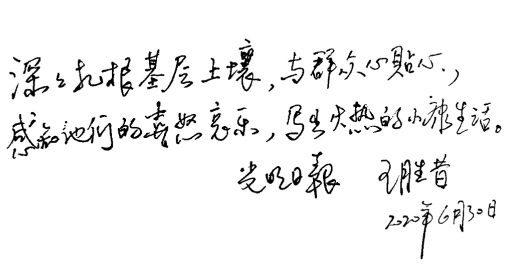 深深扎根基层土壤，与群众心贴心，
感知他们的喜怒哀乐，写出火热的小康生活。
光明日报 王胜昔
2020年6月30日